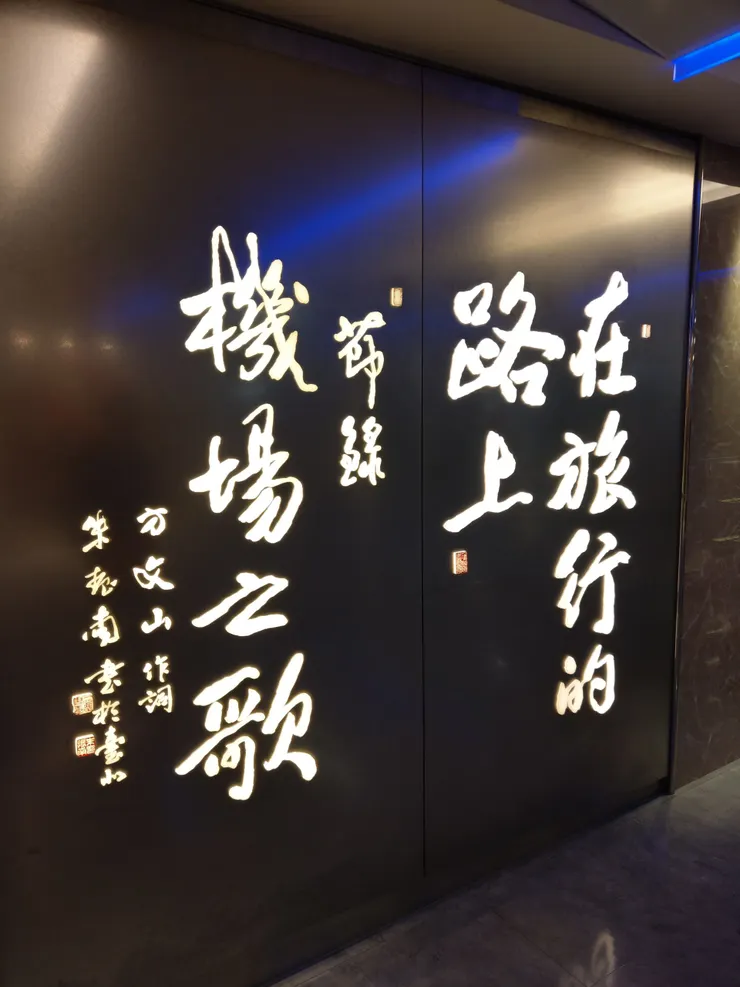 在旅行的
路上
節錄
機場之歌
方文山 作詞
朱振南 書於臺北